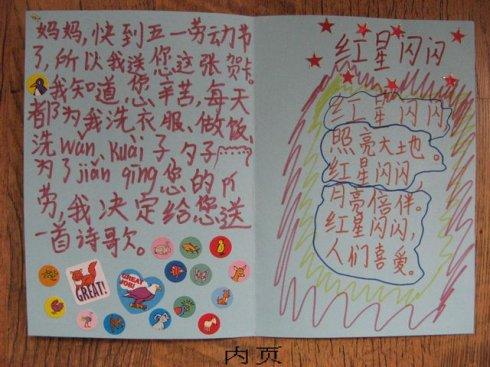 妈妈,快到五一劳动节
了,所以我送您这张贺卡。
我知道,您辛苦,每天
都为我洗衣服、做饭、
洗wǎn、kuài子、夕子……
为了jiǎn qīng您的
劳,我决定给您送
一首诗歌欠。
GREAT!
GREAT JOB!
红星闪闪
红星闪闪
照亮大地。
红星闪闪,
月亮倍伴。
红星闪闪,
人们喜爱。
内页